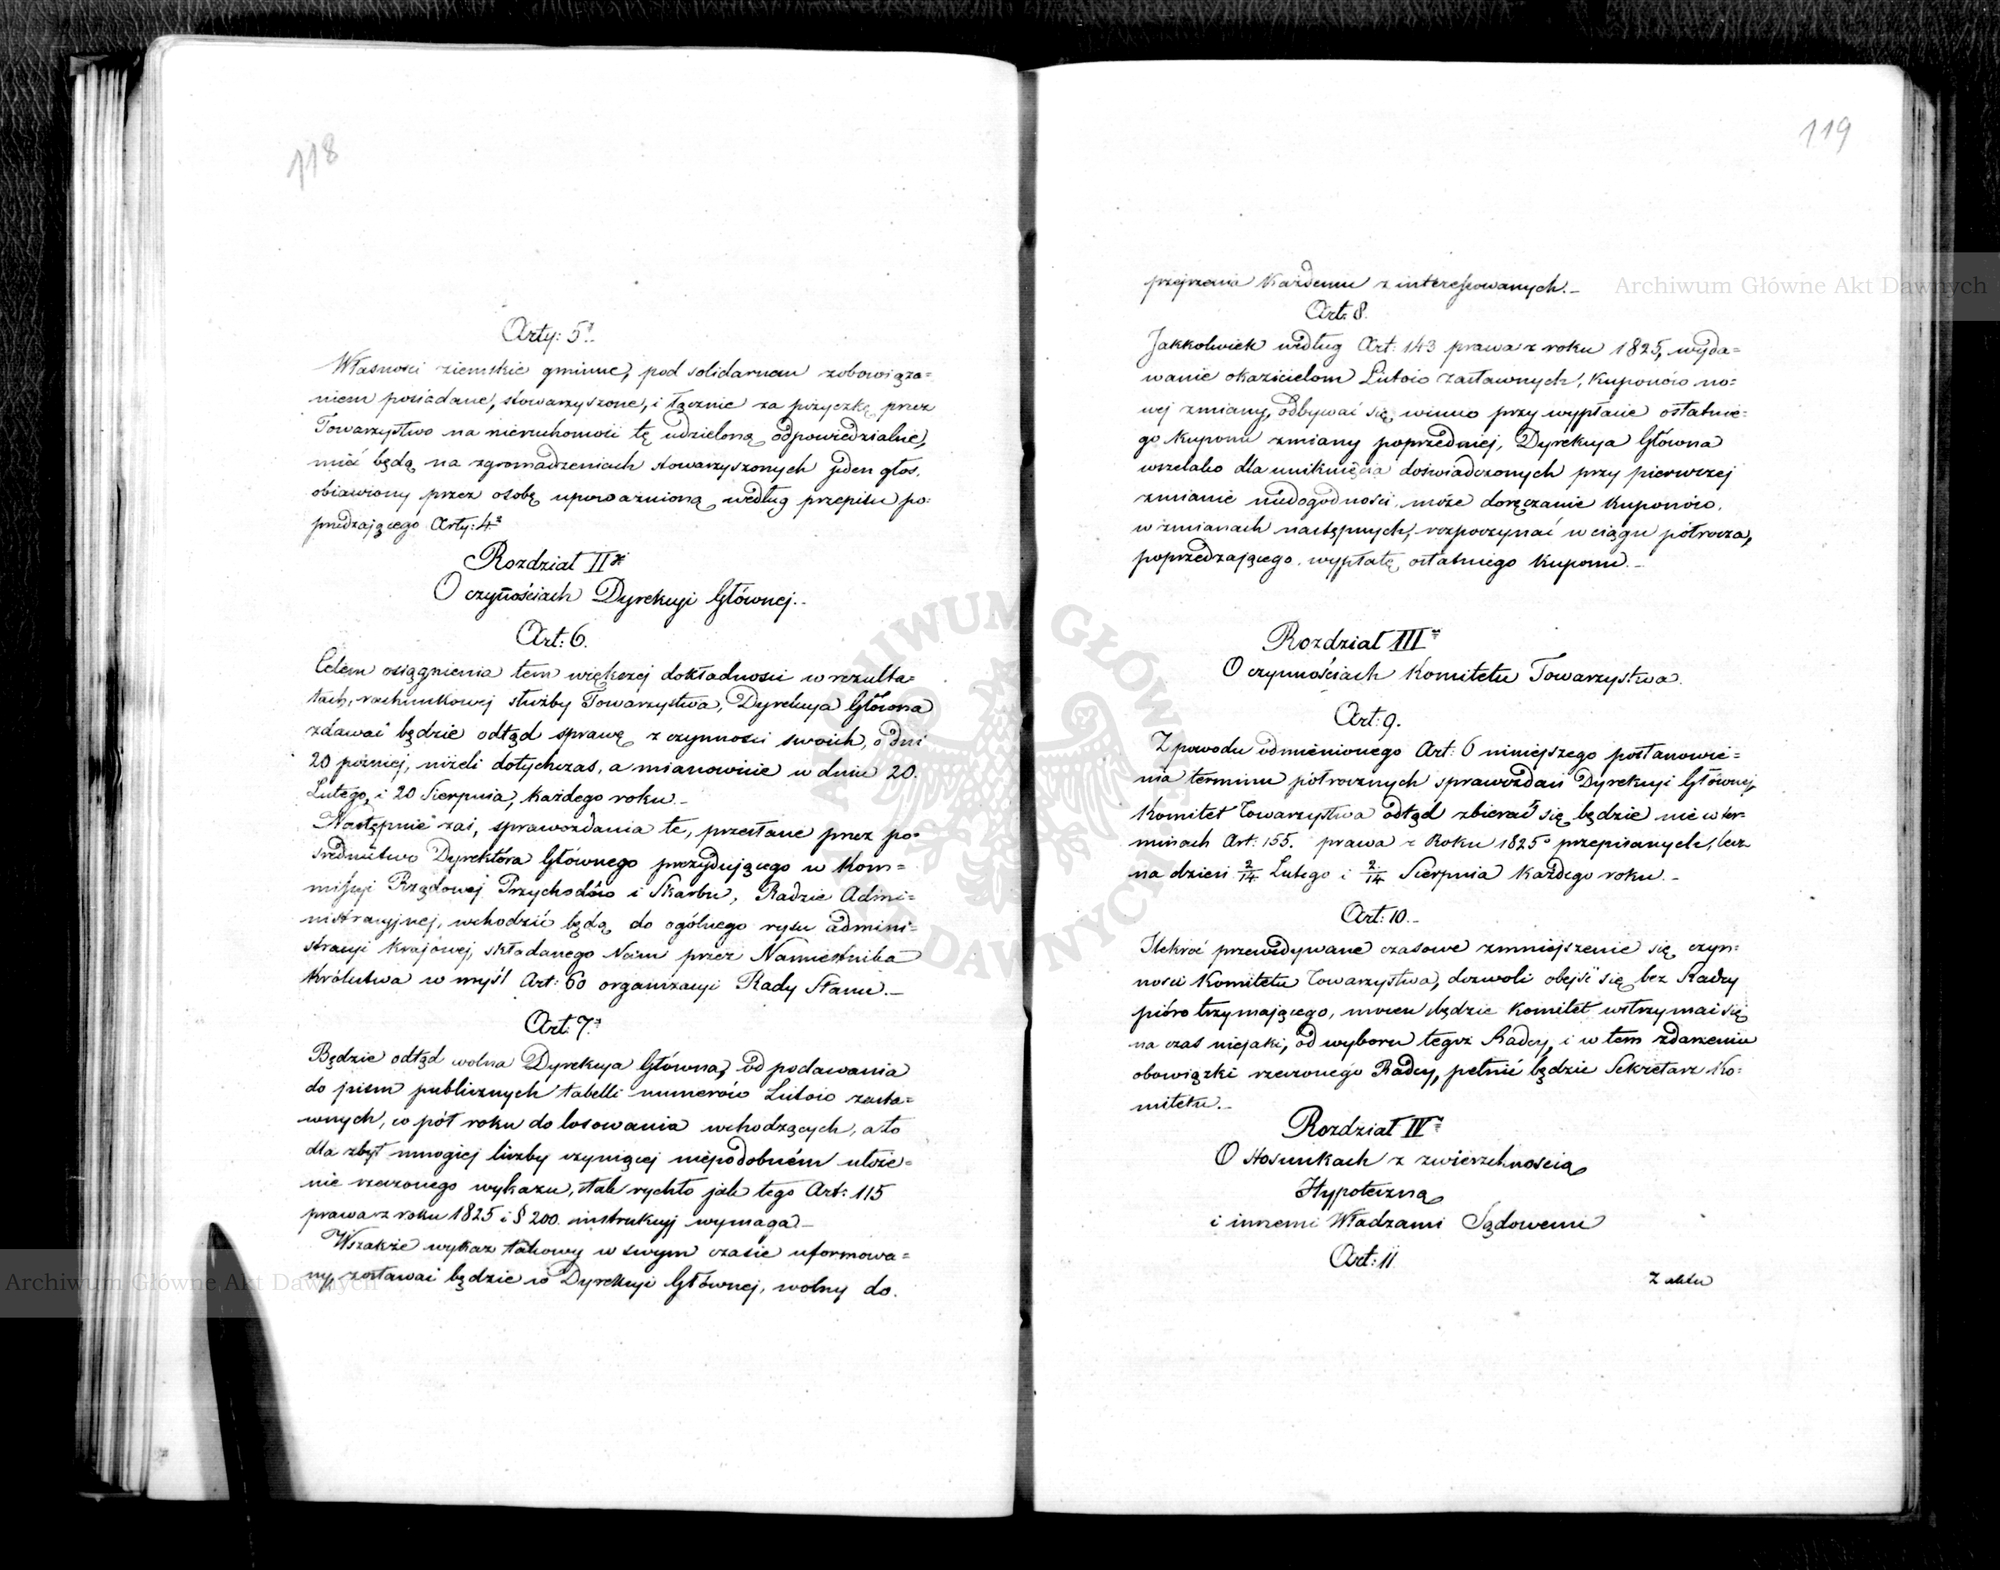 118
Arty: 5.
Własności ziemskie gminne, pod solidarnem zobowiąza=
niem posiadane, stowarzyszone, i łącznie za pożyczkę przez
Towarzystwo na nieruchomość tę udzieloną odpowiedzialne,
mieć będą na zgromadzeniach stowarzyszonych jeden głos,
obiawiony przez osobę upoważnioną według przepisu po=
przedzającego Arty: 4º
Rozdział II
O czynościach Dyrekcyi Głównej.
Art: 6.
Celem osiągnienia tem większej dokładności w rezulta=
tach, rachunkowej służby Towarzystwa, Dyrekcya Główna
zdawać będzie odtąd sprawę z czynności swoich, o dni
20 później, niżeli dotychczas, a mianowicie w dniu 20.
Lutego, i 20 Sierpnia, każdego roku.
Następnie zaś, sprawozdania te, przesłane przez po=
srednictwo Dyrektora Głównego prezydującego w Kom=
missyi Rządowej Przychodów i Skarbu, Radzie Admi=
nistracyjnej, wchodzić będą do ogólnego rysu admini=
stracyi Krajowej, składanego Nam przez Namiestnika
Królestwa w myśl Art: 60 organizacyi Rady Stanu.
Art: 7.
Będzie odtąd wolna Dyrekcya Główna, od podawania
do pism publicznych tabelli numerów Listów zasta=
wnych, co pół roku do losowania wchodzących, a to
dla zbyt mnogiej liczby czyniącej niepodobném ułoże=
nie rzeczonego wykazu, tak rychło jak tego Art: 115
prawa z roku 1825 i § 200. instrukcyj wymaga.
Wszakże wykaz takowy w swym czasie uformowa=
ny, zostawać będzie w Dyrekcyi Głównej, wolny do.
119
przejrzenia każdemu z interessowanych.
Art: 8.
Jakkolwiek według Art: 143 prawa z roku 1825, wyda=
wanie okazicielom Listów zastawnych, Kuponów no=
wej zmiany, odbywać się winno przy wypłacie ostatnie=
go Kuponu zmiany poprzedniej, Dyrekcya Główna
wszelako dla uniknięcia doświadczonych przy pierwszej
zmianie niedogodności, może doręczanie Kuponów,
w zmianach następnych, rozpoczynać w ciągu półrocza,
poprzedzającego, wypłatę ostatniego Kuponu.
Rozdział III
O czynnościach Komitetu Towarzystwa.
Art: 9.
Z powodu odmienionego Art: 6 niniejszego postanowie=
nia terminu półrocznych sprawozdań Dyrekcyi Głównej,
Komitet Towarzystwa odtąd zbierać się będzie nie w ter
minach Art: 155. prawa z Roku 1825º przepisanych, lecz
na dzień 2/14 Lutego i 2/14 Sierpnia każdego roku.
Art: 10.
Ilekroć przewidywane czasowe zmniejszenie się czyn=
ności Komitetu Towarzystwa, dozwoli obejść się bez Radcy
pióro trzymającego, mocen będzie Komitet wstrzymać się
na czas niejaki, od wyboru tegoż Radcy, i w tem zdarzeniu
obowiązki rzeczonego Radcy, pełnić będzie Sekretarz Ko=
mitetu.
Rozdział IV
O stosunkach z zwierzchnością
Hypoteczną
i innemi Władzami Sądowemi
Art: 11
Z aktu
Archiwum Główne Akt Dawnych
Archiwum Główne Akt Dawnych
ARCHIWUM GŁÓWNE AKT DAWNYCH